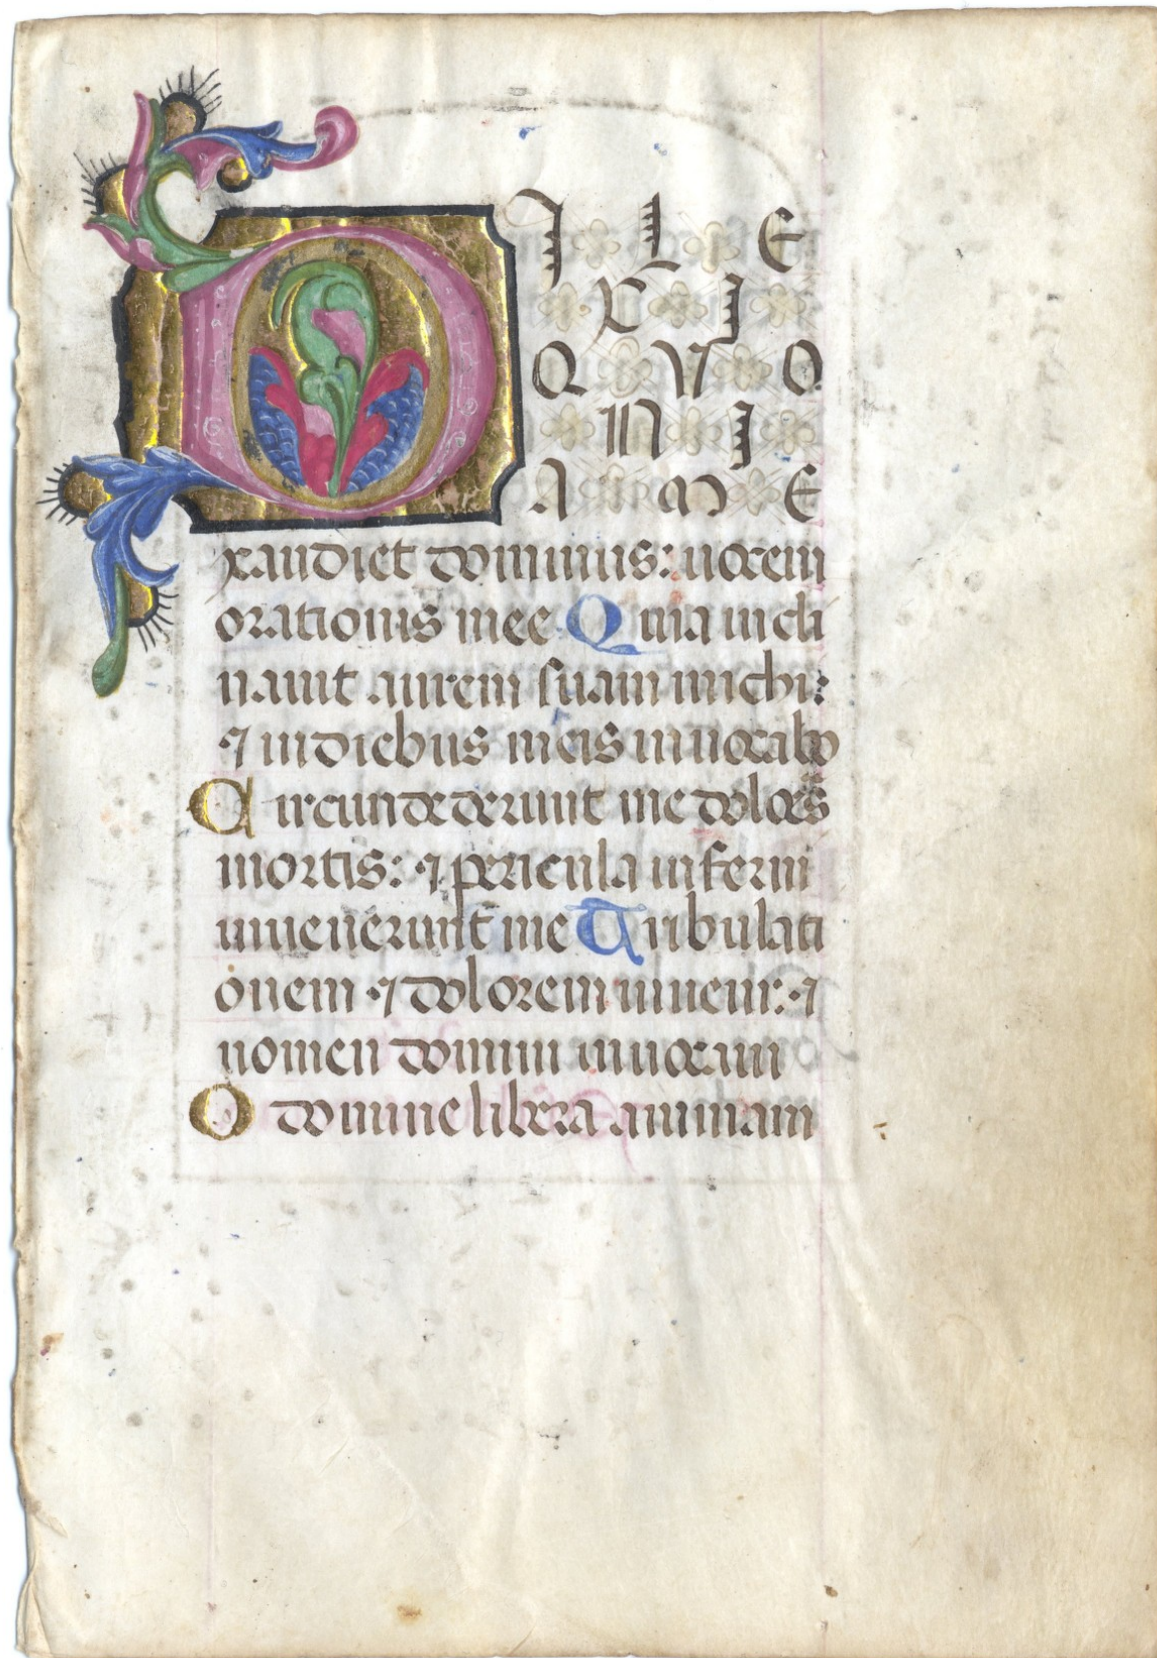 DILE
XI
QVO
NI
AM E
xaudiet dominus: uocem
orationis mee Quia incli
nauit aurem suam michi:
⁊ in diebus meis inuocabo
Circundederunt me doloẽs
mortis: ⁊ pericula inferni
inuenerunt me Tribulati
onem ⁊ dolorem inueni: ⁊
nomen domini inuocaui
O domine libera animam